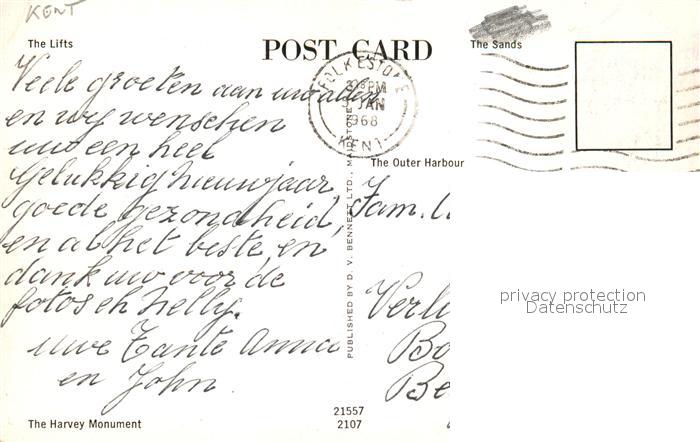 KENT
The Lifts
POST CARD
The Sands
FOLKESTONE
PM
JAN
1968
KENT
Veele groeten aan uw allen
en wy wenschen
uw een heel
Gelukkig nieuwjaar
goede gezondheid,
en al het beste, en
dank uw voor de
fotos eh Nelly.
uwe Tante Anna
en John
The Outer Harbour
Fam.
PUBLISHED BY D. V. BENNETT LTD., MAIDSTONE
privacy protection
Datenschutz
The Harvey Monument
21557
2107